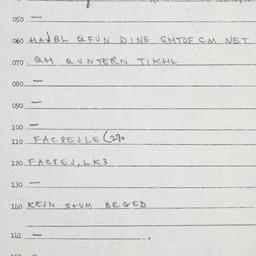 050 —
060 HAJBL QFUN DINE SHTOF CM NET
070. QH QUNTERN TIKHL
080. —
090. —
100 —
110 FACSEJLE (2%
120 FACSEJ, LK3
130 —
140 KEJN STUM BEGED
141 —